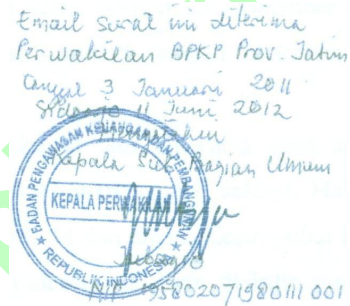 Email surat ini diterima
Perwakilan BPKP Prov. Jatim
tanggal 3 Januari 2011
Sidoarjo 11 Juni 2012
Kepala Sub Bagian Umum
BADAN PENGAWASAN KEUANGAN DAN PEMBANGUNAN
KEPALA PERWAKILAN
REPUBLIK INDONESIA
NIP 195802071980111 001